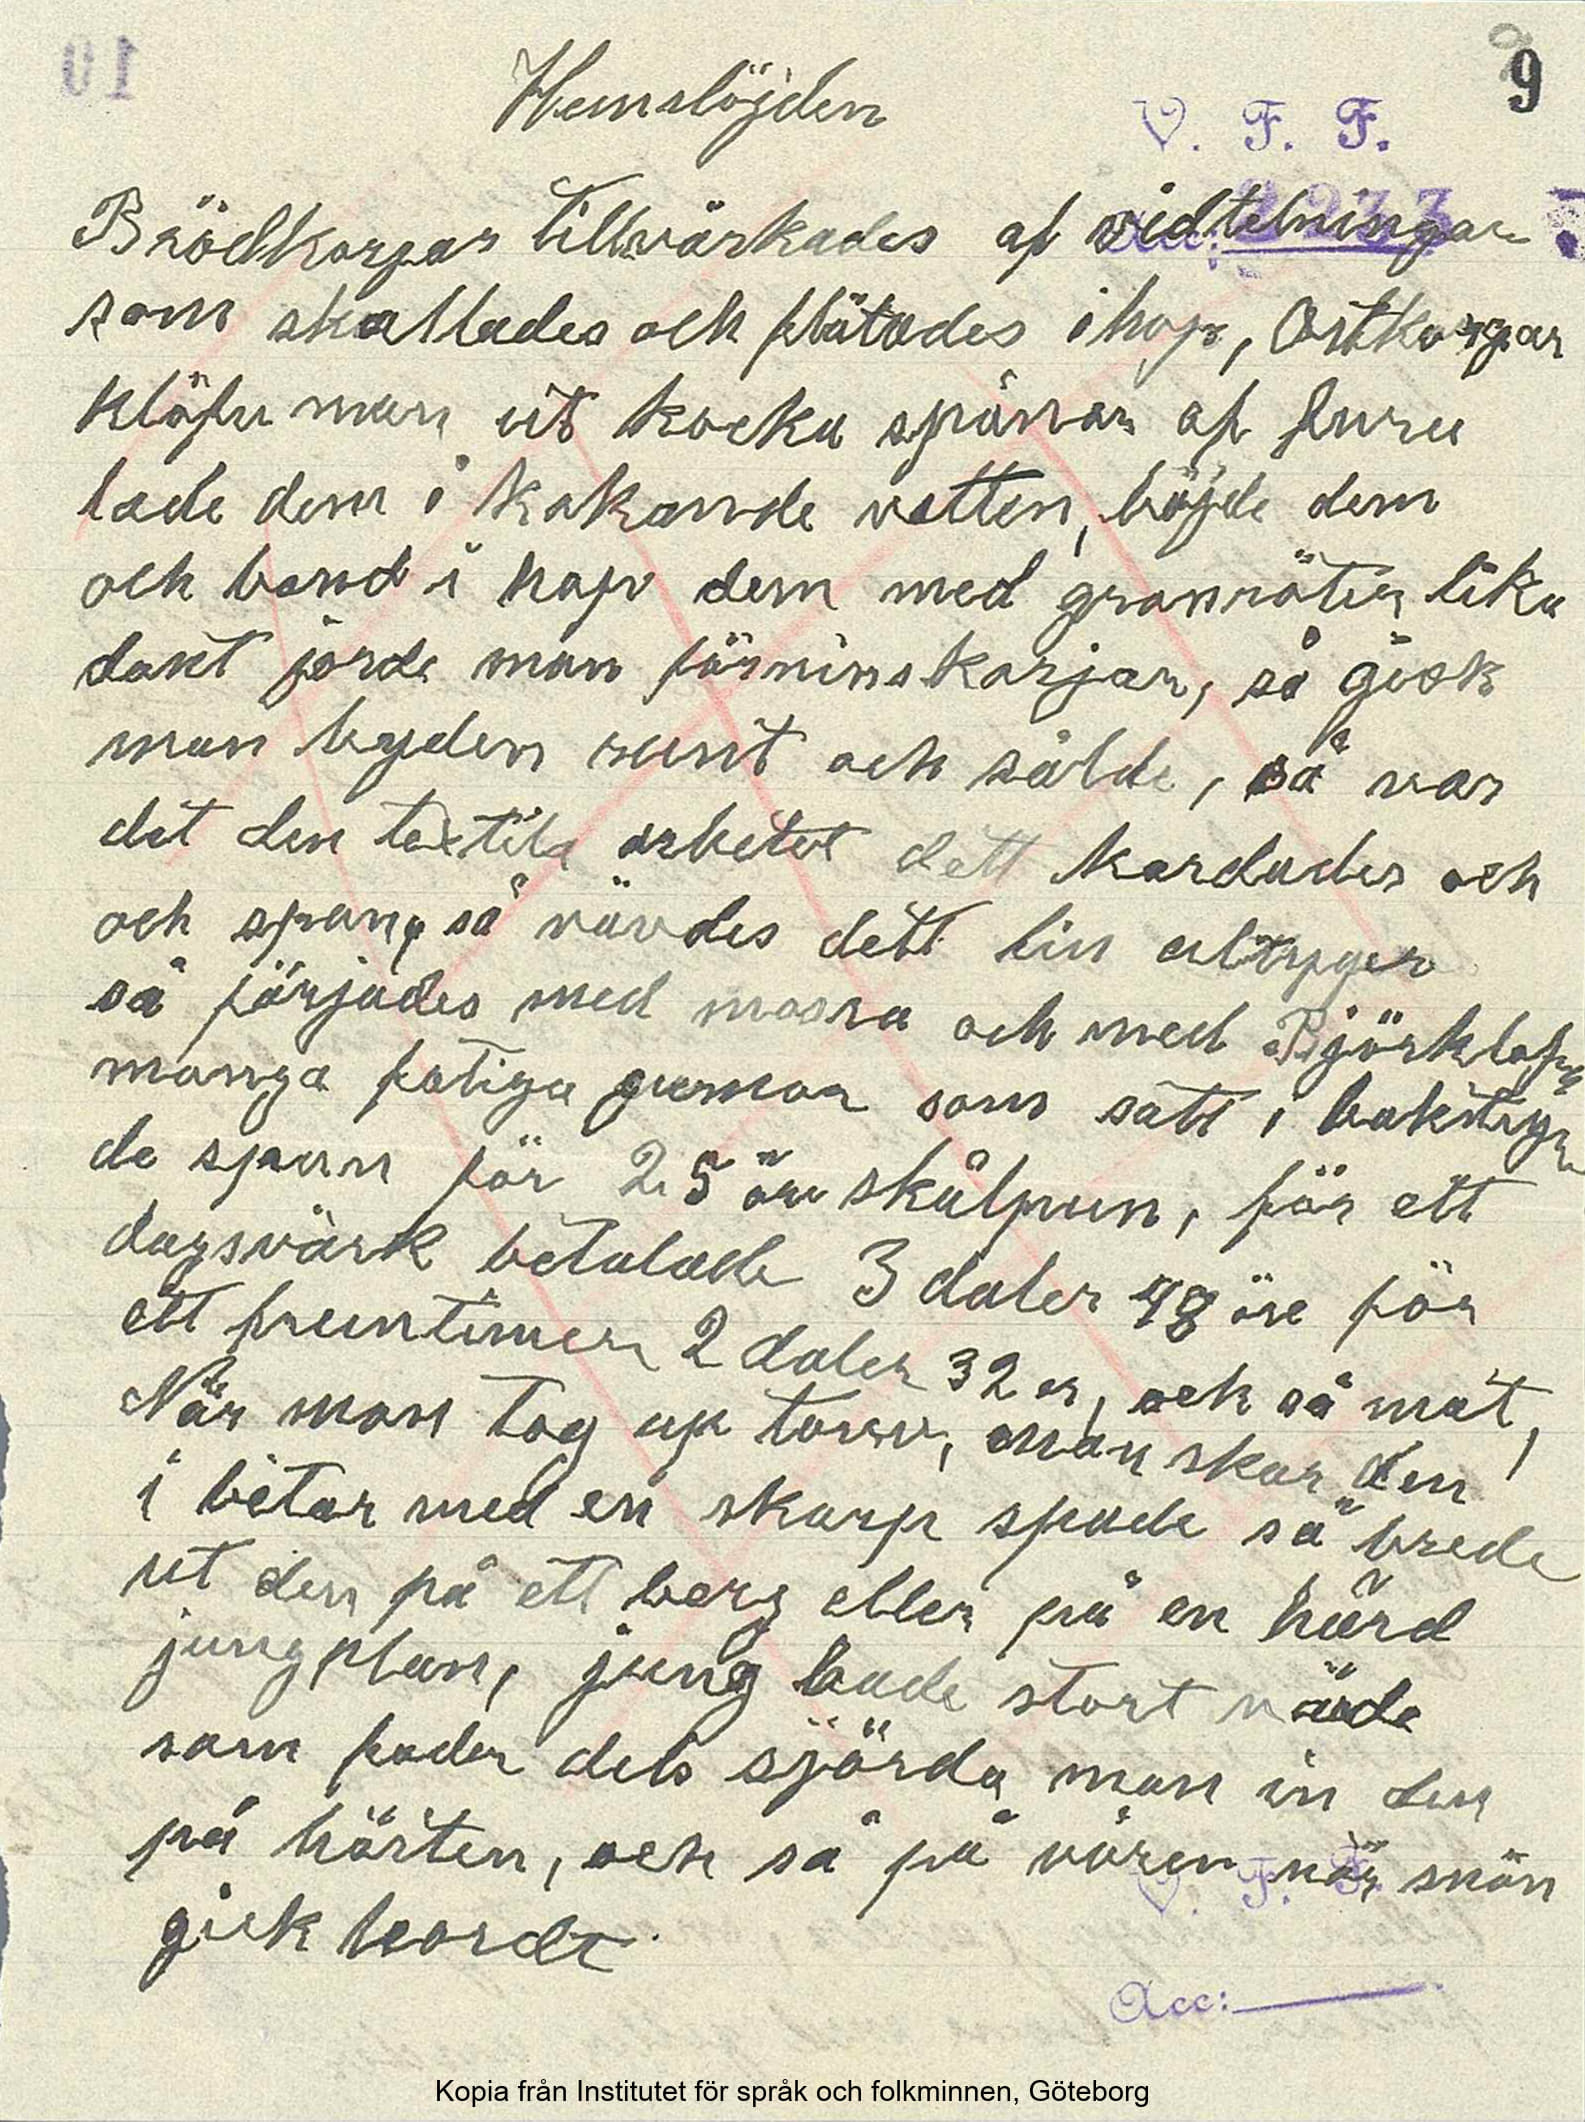 9
Hemslöjden
V. F. F.
Brödkorgar tillvärkades af vidtelningar
som skallades och flätades ihop, Ostkorgar
klöfu man ut kocka spånar af furu
lade dem i kokande vatten, böjde dem
och band i hop dem med granrötter lika
dant jorde man förninskorjar, så gick
man bygden runt och sålde, så var
det den textila arbetet dett kardades och
och span, så vävdes dett lin ultyger
så färjades med mossa och med Björklöf
manga fatiga gumor som satt i bakstugu
de spann för 25 öre skålpun, för ett
dagsvärk betalade 3 daler 48 öre för
ett fruntimer 2 daler 32 er, och så mat,
När man tog up torv, man skar den
i bitar med en skarp spade så brede
ut den på ett berg eller på en hård
jungplan, jung hade stort värde
som foder dels sjörda man in den
på hösten, och så på våren när snön
gick bordt.
V. F. F.
Acc:
Kopia från Institutet för språk och folkminnen, Göteborg